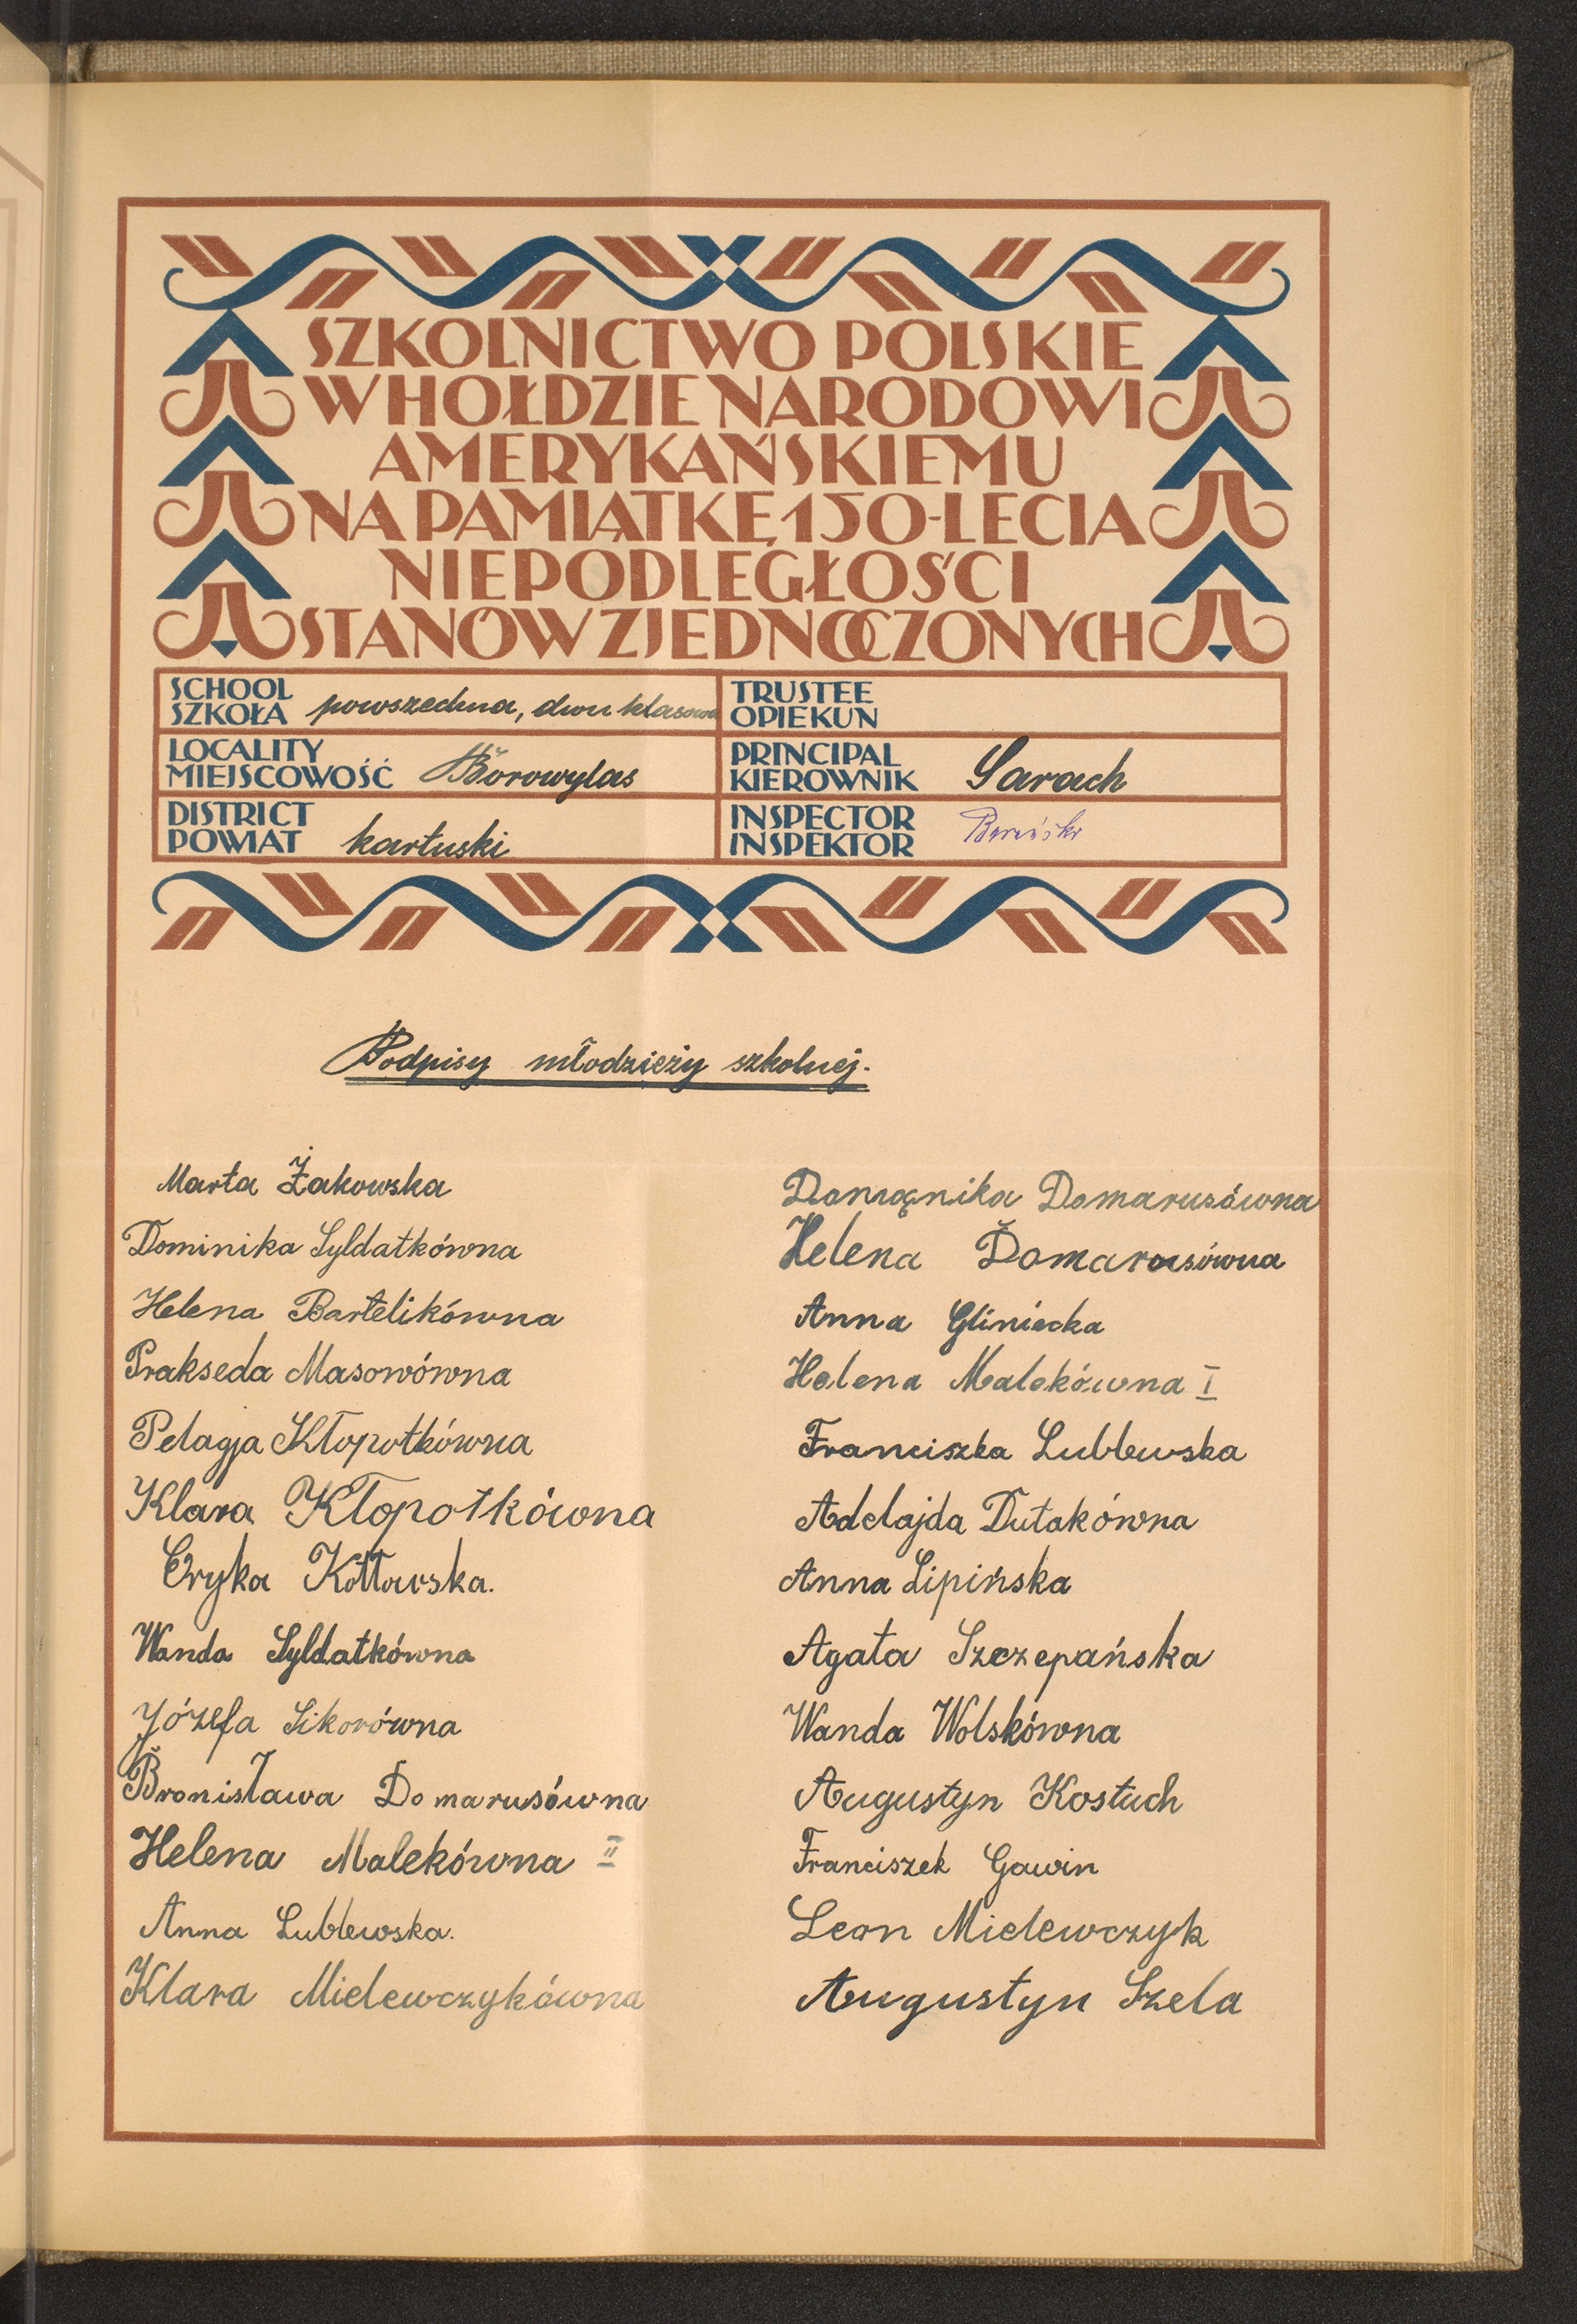 SZKOLNICTWO POLSKIE
W HOŁDZIE NARODOWI
AMERYKAŃSKIEMU
NA PAMIĄTKĘ 150-LECIA
NIEPODLEGŁOŚCI
STANÓW ZJEDNOCZONYCH
SCHOOL
SZKOŁA powszechna, dwuklasowa
TRUSTEE
OPIEKUN
LOCALITY
MIEJSCOWOŚĆ Borowylas
PRINCIPAL
KIEROWNIK Sarach
DISTRICT
POWIAT kartuski
INSPECTOR
INSPEKTOR
Podpisy młodzieży szkolnej.
Marta Żakowska
Dominika Syldatkówna
Helena Bartelikówna
Prakseda Masowówna
Pelagja Kłopotkówna
Klara Kłopotkówna
Eryka Kottowska.
Wanda Syldatkówna
Józefa Sikorówna
Bronisława Domarusówna
Helena Malekówna II
Anna Lublewska.
Klara Mielewczykówna
Domięnika Domarusówna
Helena Domarusówna
Anna Gliniecka
Helena Malekówna I
Franciszka Lublewska
Adelajda Dutakówna
Anna Lipińska
Agata Szczepańska
Wanda Wolskówna
Augustyn Kostuch
Franciszek Gawin
Leon Mielewczyk
Augustyn Szela